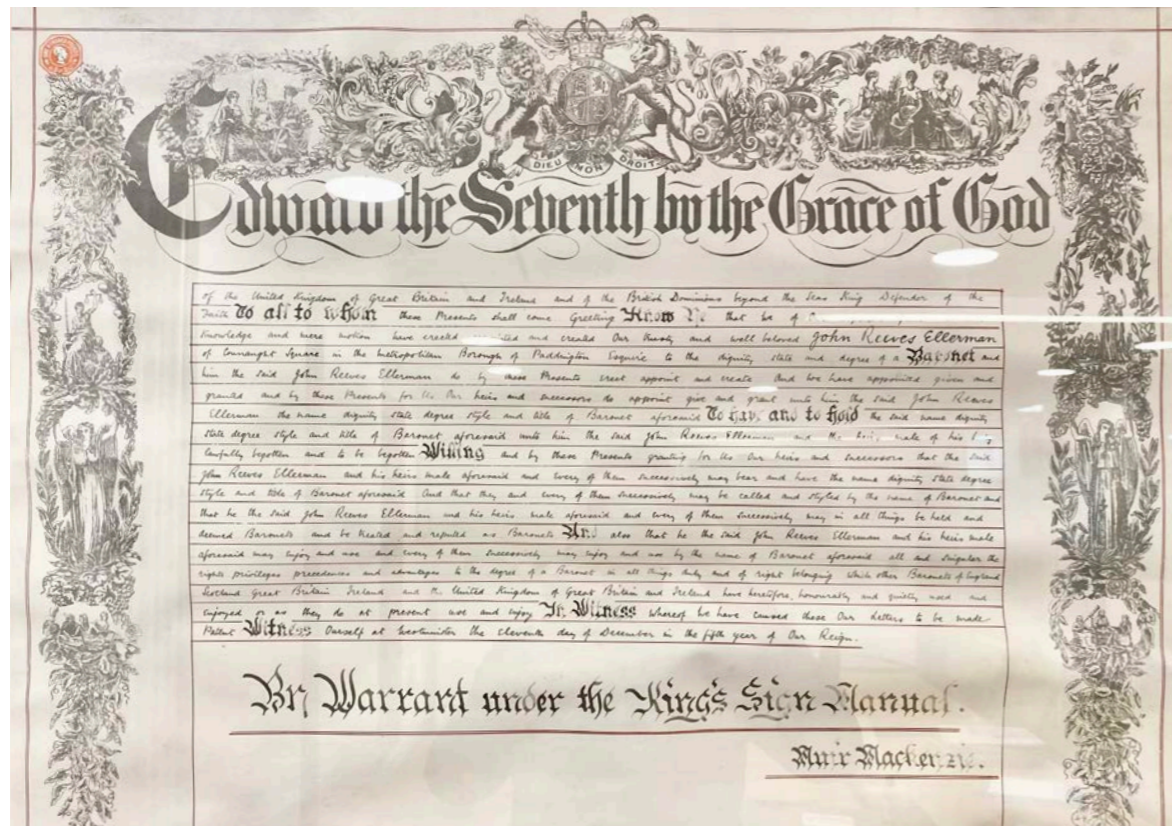 DIEU MON DROIT
Edward the Seventh by the Grace of God
of the United Kingdom of Great Britain and Ireland and of the British Dominions beyond the Seas King Defender of the
Faith To all to whom these Presents shall come Greeting Know Ye that We of
knowledge and mere motion have created and created Our trusty and well beloved John Reeves Ellerman
of Connaught Square in the metropolitan Borough of Paddington Esquire to the dignity state and degree of a Baronet and
him the said John Reeves Ellerman do by these Presents erect appoint and create And We have appointed given and
granted and by these Presents for Us Our heirs and successors do appoint give and grant unto him the said John Reeves
Ellerman the name dignity state degree style and title of Baronet aforesaid To have and to hold the said name dignity
state degree style and title of Baronet aforesaid unto him the said John Reeves Ellerman and the heirs male of his body
lawfully begotten and to be begotten Willing and by these Presents granting for Us Our heirs and successors that the said
John Reeves Ellerman and his heirs male aforesaid and every of them successively may bear and have the name dignity state degree
style and title of Baronet aforesaid And that they and every of them successively may be called and styled by the name of Baronet and
that he the said John Reeves Ellerman and his heirs male aforesaid and every of them successively may in all things be held and
deemed Baronets and be treated and reputed as Baronets And also that he the said John Reeves Ellerman and his heirs male
aforesaid may enjoy and use and every of them successively may enjoy and use by the name of Baronet aforesaid all and singular the
rights privileges precedences and advantages to the degree of a Baronet in all things duly and of right belonging which other Baronets of England
Scotland Great Britain Ireland and the United Kingdom of Great Britain and Ireland have heretofore honourably and quietly used and
enjoyed or as they do at present use and enjoy In Witness whereof We have caused these Our Letters to be made
Patent Witness Ourself at Westminster the eleventh day of December in the fifth year of Our Reign.
By Warrant under the King's Sign Manual.
Muir Mackenzie.